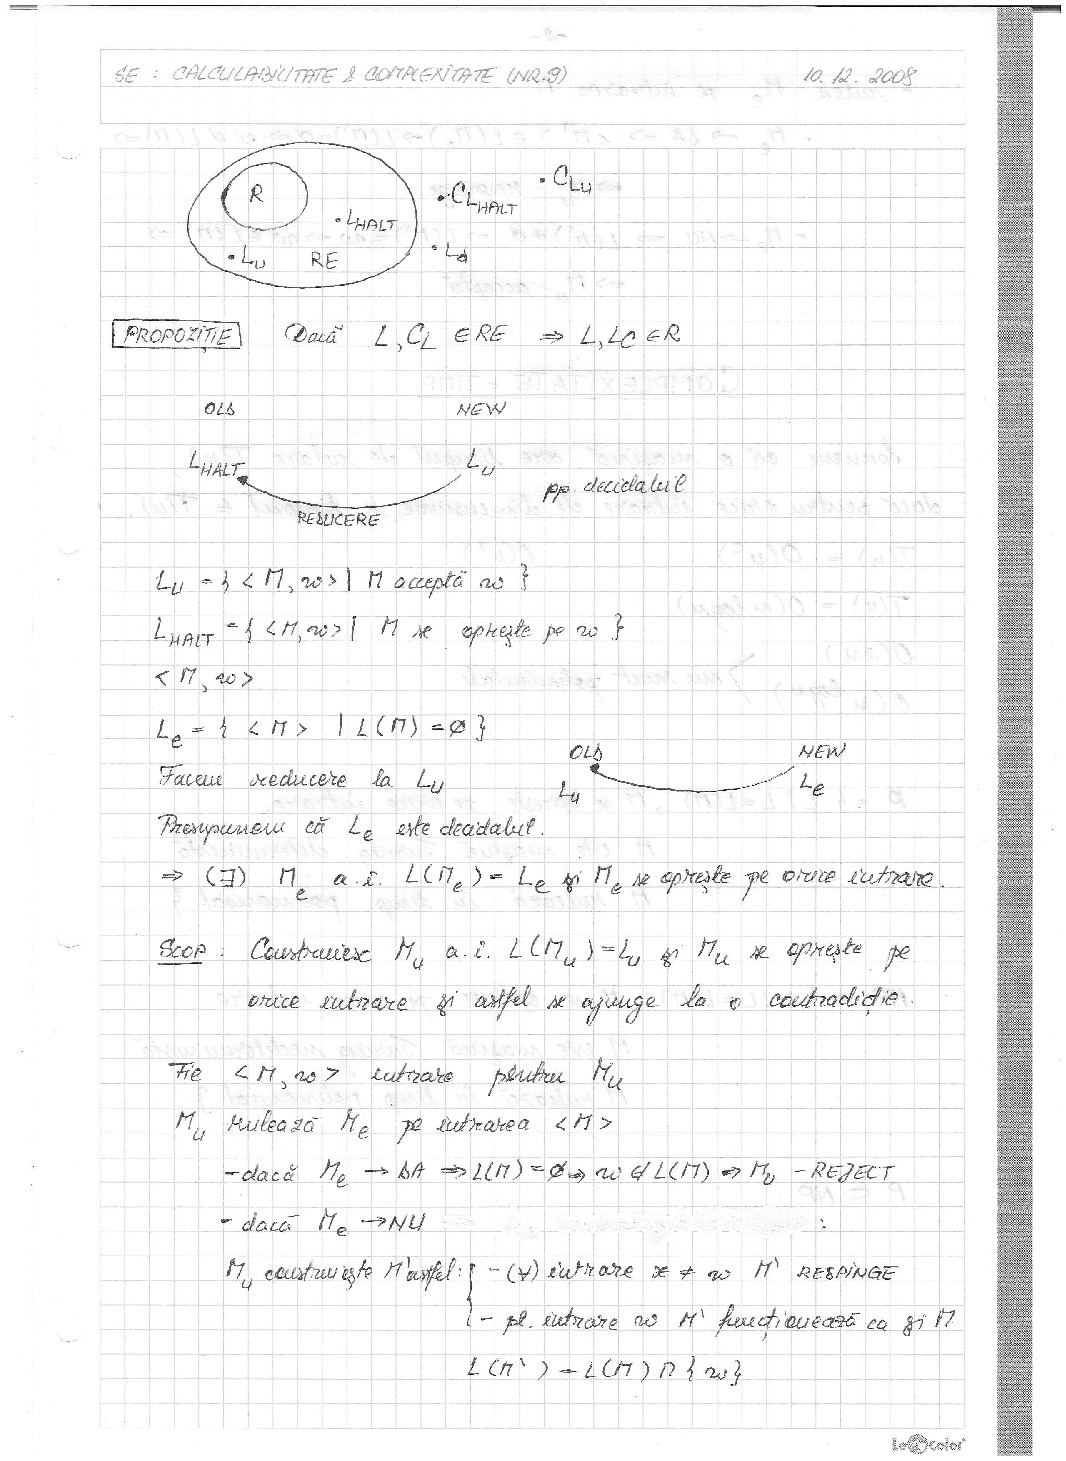 SE : CALCULABILITATE & COMPLEXITATE (NR.9) 10.12.2008
R
L_HALT
L_U RE
C_L_HALT
C_LU
L_d
PROPOZIȚIE Dacă L, C_L ∈ RE ⇒ L, LC ∈ R
OLD NEW
L_HALT L_U pp. decidabil
REDUCERE
L_U = { < M, w > | M acceptă w }
L_HALT = { < M, w > | M se oprește pe w }
< M, w >
L_e = { < M > | L(M) = ∅ }
OLD NEW
Facem reducere la L_U L_U L_e
Presupunem că L_e este decidabil.
⇒ (∃) M_e a.î. L(M_e) = L_e și M_e se oprește pe orice intrare.
SCOP : Construiesc M_u a.î. L(M_u) = L_u și M_u se oprește pe
orice intrare și astfel se ajunge la o contradicție.
Fie < M, w > intrare pentru M_u
M_u rulează M_e pe intrarea < M >
- dacă M_e → DA ⇒ L(M) = ∅ ⇒ w ∉ L(M) ⇒ M_u - REJECT
- dacă M_e → NU :
M_u construiește M' astfel: - (∀) intrare x ≠ w M' RESPINGE
- pt. intrare w M' funcționează ca și M
L(M') = L(M) ∩ { w }
LegColor